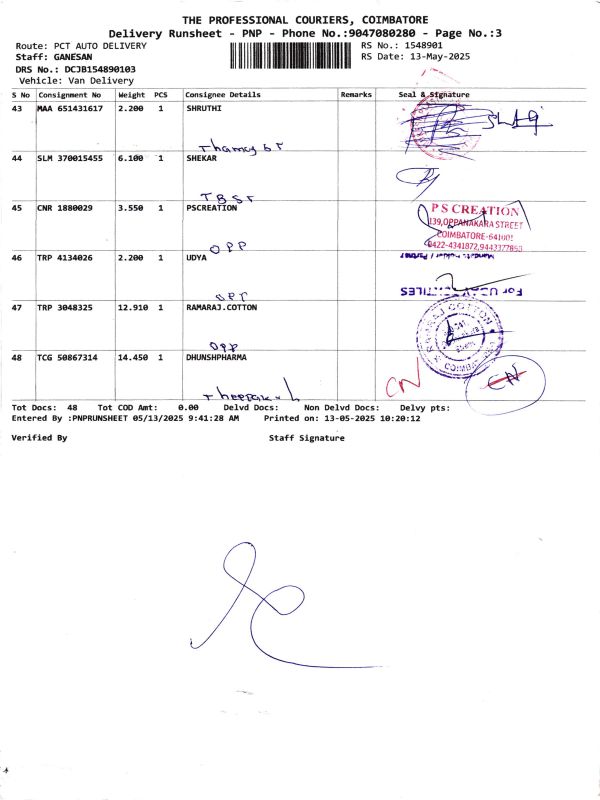 THE PROFESSIONAL COURIERS, COIMBATORE
Delivery Runsheet - PNP - Phone No.:9047080280 - Page No.:3
Route: PCT AUTO DELIVERY RS No.: 1548901
Staff: GANESAN RS Date: 13-May-2025
DRS No.: DCJB154890103
Vehicle: Van Delivery
S No Consignment No Weight PCS Consignee Details Remarks Seal & Signature
43 MAA 651431617 2.200 1 SHRUTHI
44 SLM 370015455 6.100 1 SHEKAR
45 CNR 1880029 3.550 1 PSCREATION
P S CREATION
139,OPPANAKARA STREET
COIMBATORE-641001
0422-4341872,9443377853
OPP
46 TRP 4134026 2.200 1 UDYA
47 TRP 3048325 12.910 1 RAMARAJ.COTTON
RAMRAJ COTTON
OPP
48 TCG 50867314 14.450 1 DHUNSHPHARMA
CN CN
Tot Docs: 48 Tot COD Amt: 0.00 Delvd Docs: Non Delvd Docs: Delvy pts:
Entered By :PNPRUNSHEET 05/13/2025 9:41:28 AM Printed on: 13-05-2025 10:20:12
Verified By Staff Signature